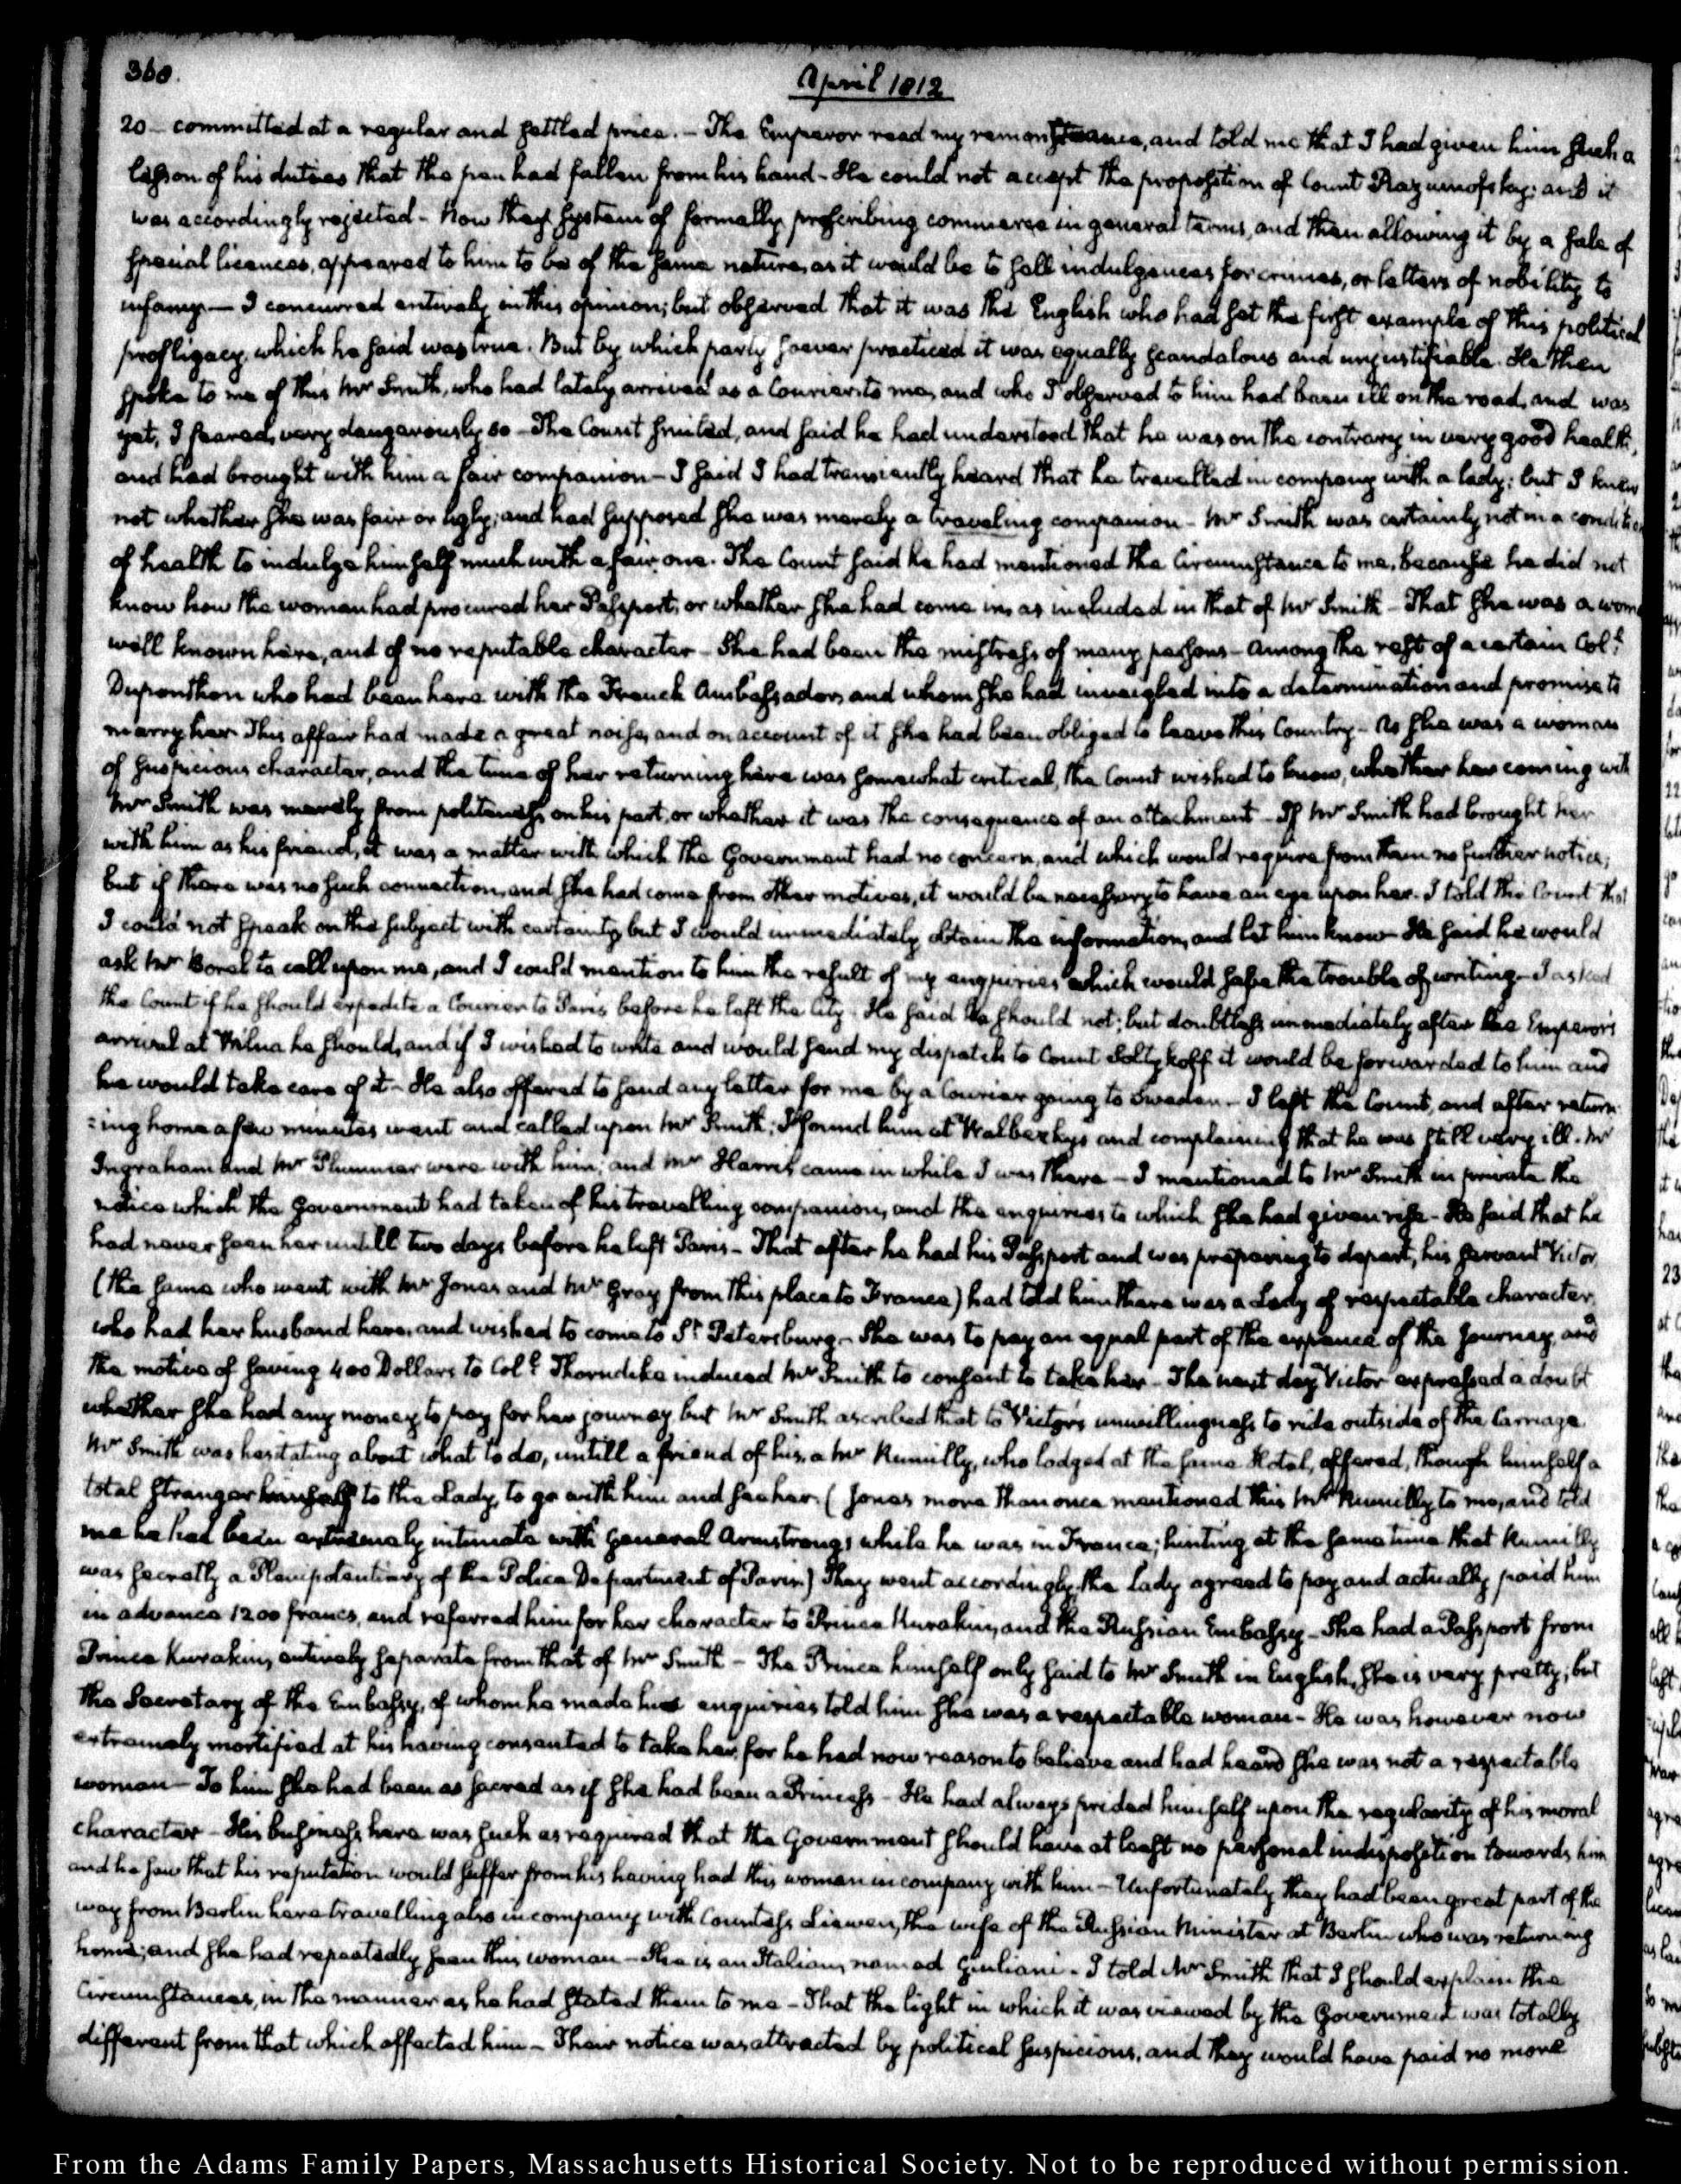 360.
April 1812
20 – committed at a regular and settled price. – The Emperor read my remonstrance, and told me that I had given him such a
lesson of his duties that the pen had fallen from his hand – He could not accept the proposition of Count Razumofsky: and it
was accordingly rejected – Now they system of formally proscribing commerce in general terms, and then allowing it by a sale of
special licences, appeared to him to be of the same nature, as it would be to sell indulgences for crimes, or letters of nobility to
infamy. — I concurred entirely in this opinion; but observed that it was the English who had set the first example of this political
profligacy, which he said was true. But by which party soever practiced it was equally scandalous and unjustifiable. He then
spoke to me of this Mr Smith, who had lately arrived as a Courier to me, and who I observed to him had been ill on the road, and was
yet, I feared, very dangerously so – The Count smiled, and said he had understood that he was on the contrary in very good health,
and had brought with him a fair companion – I said I had transiently heard that he travelled in company with a lady; but I knew
not whether she was fair or ugly; and had supposed she was merely a traveling companion – Mr Smith was certainly not in a condition
of health to indulge himself much with a fair one. The Count said he had mentioned the Circumstance to me, because he did not
know how the woman had procured her Passport, or whether she had come in, as included in that of Mr Smith – That she was a woman
well known here, and of no reputable character – She had been the mistress of many persons – Among the rest of a certain Coll.
Duponthon who had been here with the French Ambassador, and whom she had inveigled into a determination and promise to
marry her. This affair had made a great noise, and on account of it she had been obliged to leave this Country – As she was a woman
of suspicious character, and the time of her returning here was somewhat critical, the Count wished to know, whether her coming with
Mr Smith was merely from politeness on his part, or whether it was the consequence of an attachment – If Mr Smith had brought her
with him as his friend, it was a matter with which the Government had no concern, and which would require from them no further notice;
but if there was no such connection, and she had come from other motives, it would be necessary to have an eye upon her. I told the Count that
I could not speak on the subject with certainty, but I would immediately obtain the information, and let him know – He said he would
ask Mr Borel to call upon me, and I could mention to him the result of my enquiries which would save the trouble of writing – I asked
the Count if he should expedite a Courier to Paris before he left the City. He said he should not; but doubtless immediately after the Emperor's
arrival at Wilna he should, and if I wished to write and would send my dispatch to Count Soltykoff it would be forwarded to him and
he would take care of it – He also offered to send any letter for me by a Courier going to Sweden – I left the Count, and after return-
:ing home a few minutes went and called upon Mr Smith; I found him at and complaining that he was still very ill. Mr
Ingraham and Mr Plummer were with him; and Mr Harris came in while I was there – I mentioned to Mr Smith in private the
notice which the Government had taken of his travelling companion, and the enquiries to which she had given rise – He said that he
had never seen her untill two days before he left Paris – That after he had his Passport and was preparing to depart, his servant Victor,
(the same who went with Mr Jones and Mr Gray from this place to France) had told him there was a Lady of respectable character,
who had her husband here, and wished to come to St. Petersburg – She was to pay an equal part of the expence of the journey, and
the motive of saving 400 Dollars to Coll. Thorndike induced Mr Smith to consent to take her – The next day Victor expressed a doubt
whether she had any money to pay for her journey but Mr Smith ascribed that to Victor's unwillingness to ride outside of the Carriage
Mr Smith was hesitating about what to do, untill a friend of his, a Mr Rumilly, who lodged at the same Hotel, offered, though himself a
total stranger himself to the Lady, to go with him and see her. (Jones more than once mentioned this Mr Rumilly to me, and told
me he had been extremely intimate with General Armstrong, while he was in France; hinting at the same time that Rumilly
was secretly a Plenipotentiary of the Police Department of Paris) They went accordingly; the Lady agreed to pay and actually paid him
in advance 1200 francs, and referred him for her character to Prince Kurakin, and the Russian Embassy – She had a Passport from
Prince Kurakin, entirely separate from that of Mr Smith – The Prince himself only said to Mr Smith in English, she is very pretty; but
the Secretary of the Embassy, of whom he made his enquiries told him she was a respectable woman – He was however now
extremely mortified at his having consented to take her, for he had now reason to believe and had heard she was not a respectable
woman – To him she had been as sacred as if she had been a Princess – He had always prided himself upon the regularity of his moral
character – His business here was such as required that the Government should have at least no personal indisposition towards him
and he saw that his reputation would suffer from his having had this woman in company with him – Unfortunately they had been great part of the
way from Berlin here travelling also in company with Countess Liewen, the wife of the Russian Minister at Berlin who was returning
home; and she had repeatedly seen this woman – She is an Italian, named Giuliani – I told Mr Smith that I should explain the
Circumstances, in the manner as he had stated them to me – That the light in which it was viewed by the Government was totally
different from that which affected him – Their notice was attracted by political suspicions, and they would have paid no more
From the Adams Family Papers, Massachusetts Historical Society. Not to be reproduced without permission.